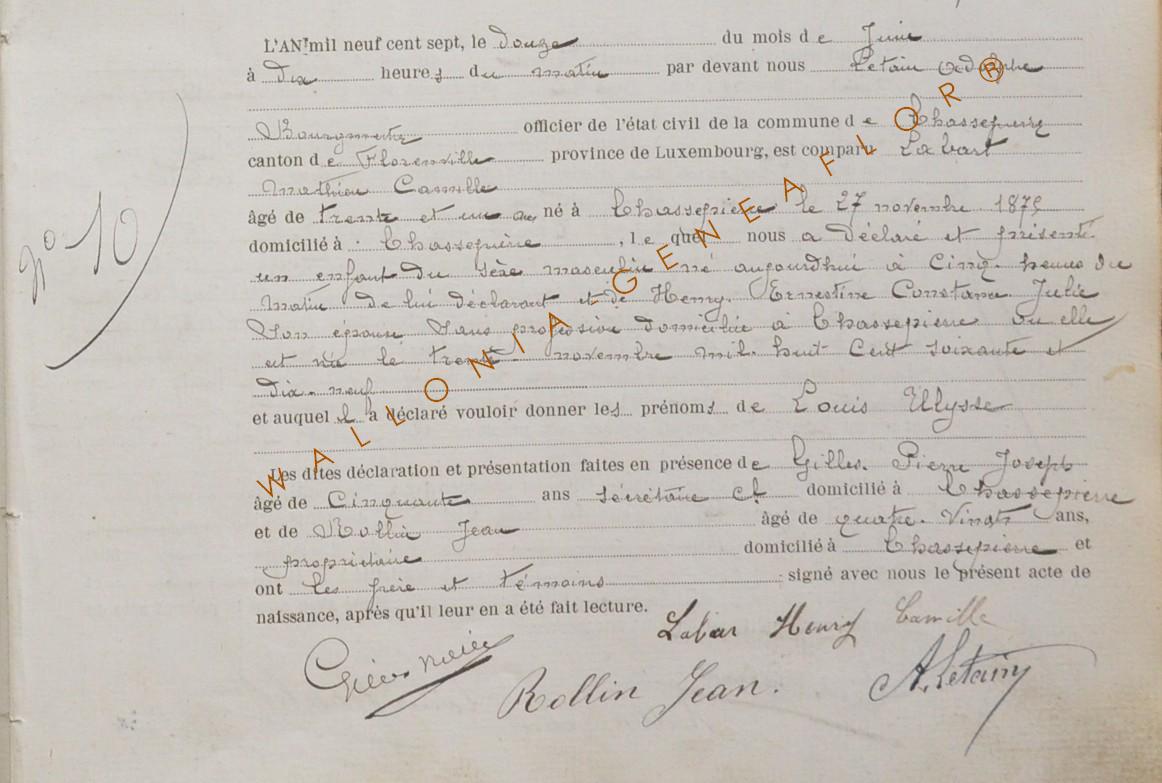 L'AN mil neuf cent sept, le douze du mois de Juin
à dix heures du matin par devant nous Letain
Bourgmestre officier de l'état civil de la commune de Chassepierre
canton de Florenville province de Luxembourg, est comparu Labart
Mathieu Camille
âgé de trente et un an né à Chassepierre le 27 novembre
domicilié à Chassepierre, lequel nous a déclaré et présenté
un enfant du sexe masculin né aujourdhui à Cinq heures du
matin de lui déclarant et de Henry Ernestine Constance Julie
Son épouse Sans profession domiciliée à Chassepierre où elle
est née le trente novembre mil huit Cent soixante et
dix-neuf
et auquel il a déclaré vouloir donner les prénoms de Louis Ulysse
Les dites déclaration et présentation faites en présence de Gilles Pierre Joseph
âgé de Cinquante ans Sécrétaire Cl domicilié à Chassepierre
et de Rollin Jean âgé de quatre-Vingts ans,
propriétaire domicilié à Chassepierre et
ont les père et témoins signé avec nous le présent acte de
naissance, après qu'il leur en a été fait lecture.
Labar Henry Camille
Rollin Jean. A. Letain
N° 10
WALLONIA - GENEAFLOR®